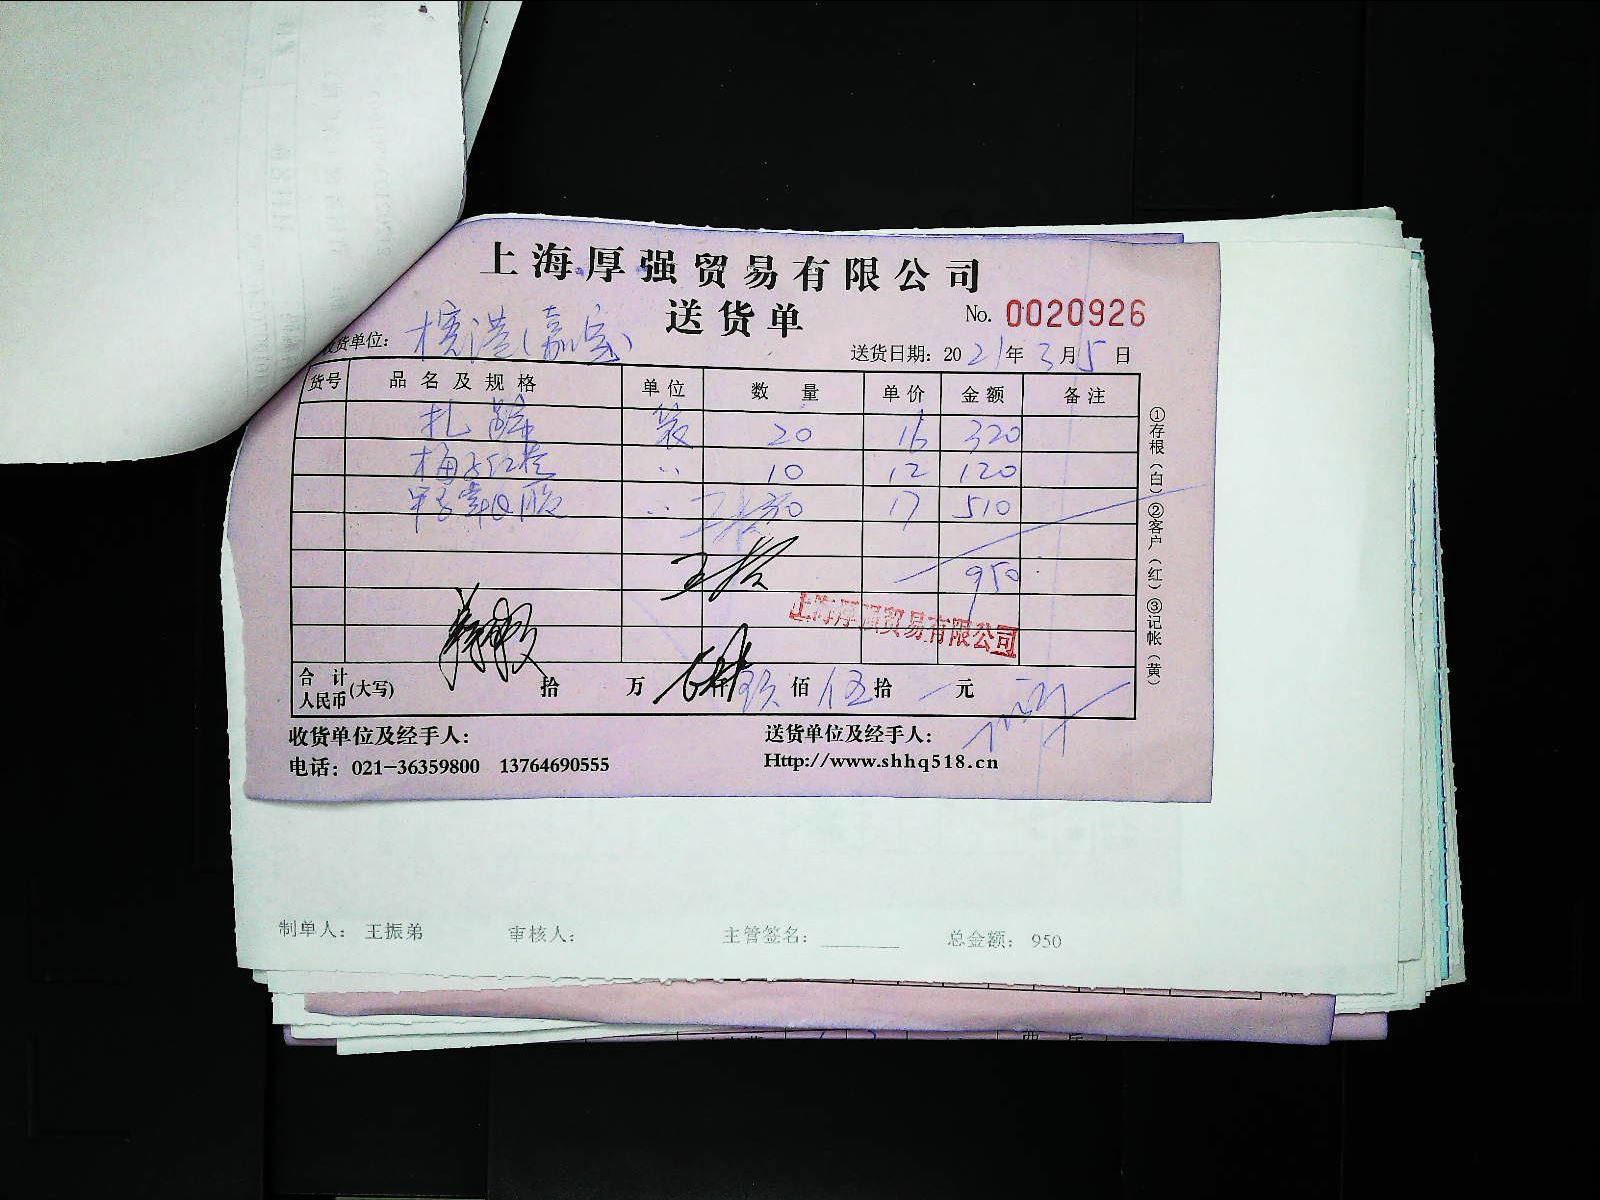 上海厚强贸易有限公司
送货单
No. 0020926
收货单位: 港(嘉宝)
送货日期: 2021年3月5日
货号 品名及规格 单位 数量 单价 金额 备注
扎 袋 20 16 320
梅子红 〃 10 12 120
〃 30 17 510
950
上海厚强贸易有限公司
合计人民币(大写) 拾 万 仟 玖 佰 伍 拾 元
①存根(白)②客户(红)③记帐(黄)
收货单位及经手人:
送货单位及经手人:
电话: 021-36359800 13764690555
Http://www.shhq518.cn
制单人: 王振弟 审核人: 主管签名: 总金额: 950